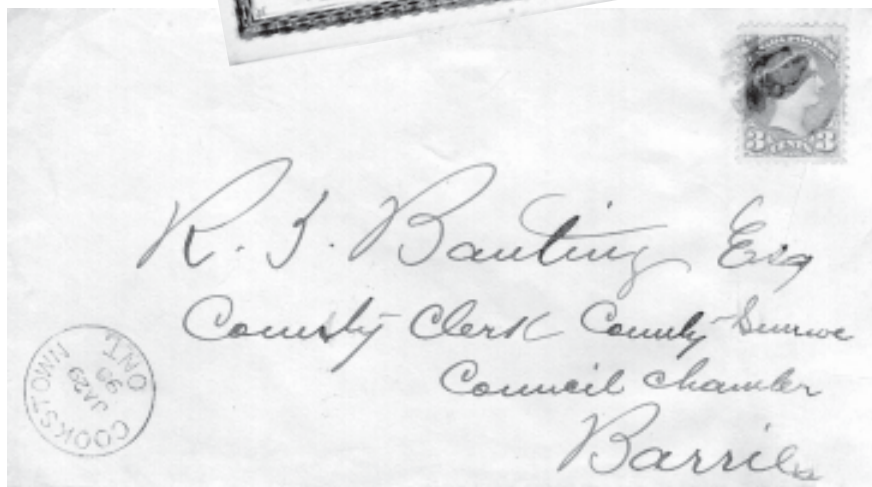 3 CENTS 3
R. T. Banting Esq
County Clerk County Simcoe
Council Chamber
Barrie
COOKSTOWN
JA 29
ONT.